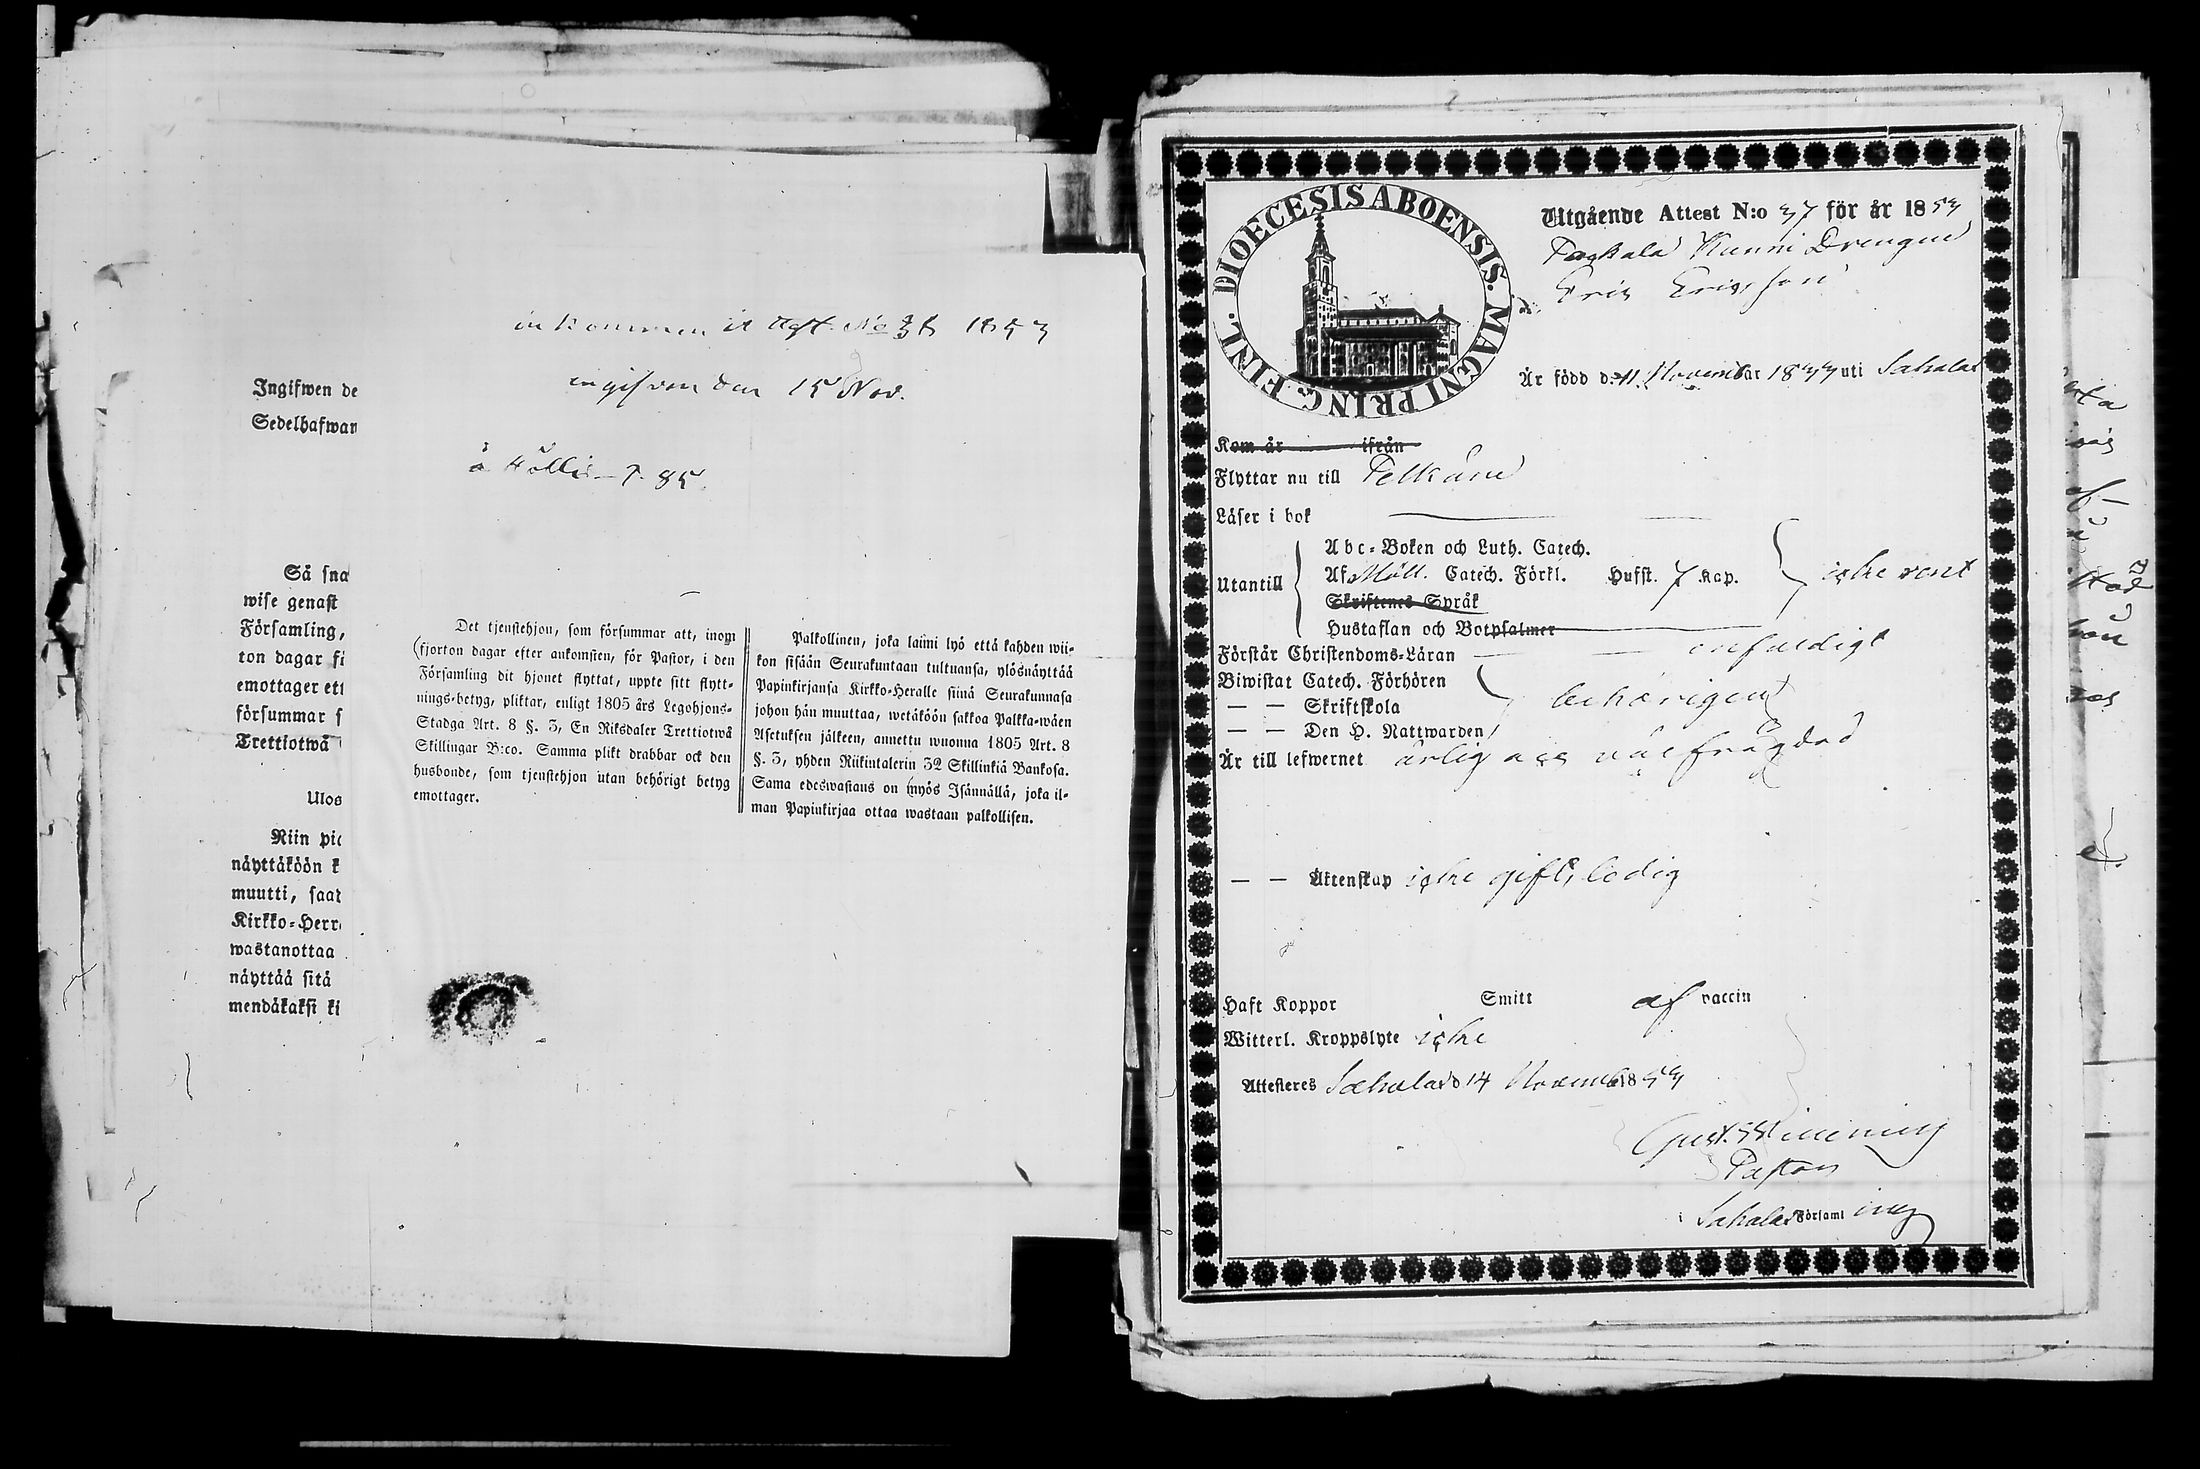 inkommen it Att. No 38 1853
ingifven den 15 Nov.
å Kållis 7. 85.
Ingifwen de
Sedelhafwar
Så sna
wise genast
Församling,
ton dagar fi
emottager ett
försummar s
Trettiotwå
Ulos
Niin pid
näyttäköön k
muutti, saat
Kirkko-Herr
wastanottaa
näyttää sitä
mendäkaksi ki
Det tjenstehjon, som försummar att, inom
fjorton dagar efter ankomsten, för Pastor, i den
Församling dit hjonet flyttat, uppte sitt flytt-
nings-betyg, pliktar, enligt 1805 års Legohjons-
Stadga Art. 8 §. 3, En Riksdaler Trettiotwå
Skillingar B:co. Samma plikt drabbar ock den
husbonde, som tjenstehjon utan behörigt betyg
emottager.
Palkollinen, joka laimi lyö että kahden wii-
kon sisään Seurakuntaan tultuansa, ylösnäyttää
Papinkirjansa Kirkko-Heralle siinä Seurakunnasa
johon hän muuttaa, wetäköön sakkoa Palkka-wäen
Asetuksen jälkeen, annettu wuonna 1805 Art. 8
§. 3, yhden Riikintalerin 32 Skillinkiä Bankosa.
Sama edeswastaus on myös Isännällä, joka il-
man Papinkirjaa ottaa wastaan palkollisen.
DIOECESIS ABOENSIS. MAGNI PRINC. FINL.
Utgående Attest N:o 37 för år 1853
Drengen
Eric Ericsson
Är född d. 11 Novembr år 1833 uti Sahalax
Kom år ifrån
Flyttar nu till Pelkäne
Läser i bok
Utantill
Abc-Boken och Luth. Catech.
Af Möll. Catech. Förkl. Hufst. 7 Kap. icke rent
Skriftenes Språk
Hustaflan och Botpsalmer
Förstår Christendoms-Läran enfaldigt
Biwistat Catech. Förhören
— — Skriftskola behörigen
— — Den H. Nattwarden
Är till lefwernet ärlig och välfrägdad
— — Äktenskap icke gift, ledig
Haft Koppor Smitt af vaccin
Witterl. Kroppslyte icke
Attesteras Sahalax d 14 Novemb 1853
Gust.
Pastor
i Sahalax Församling